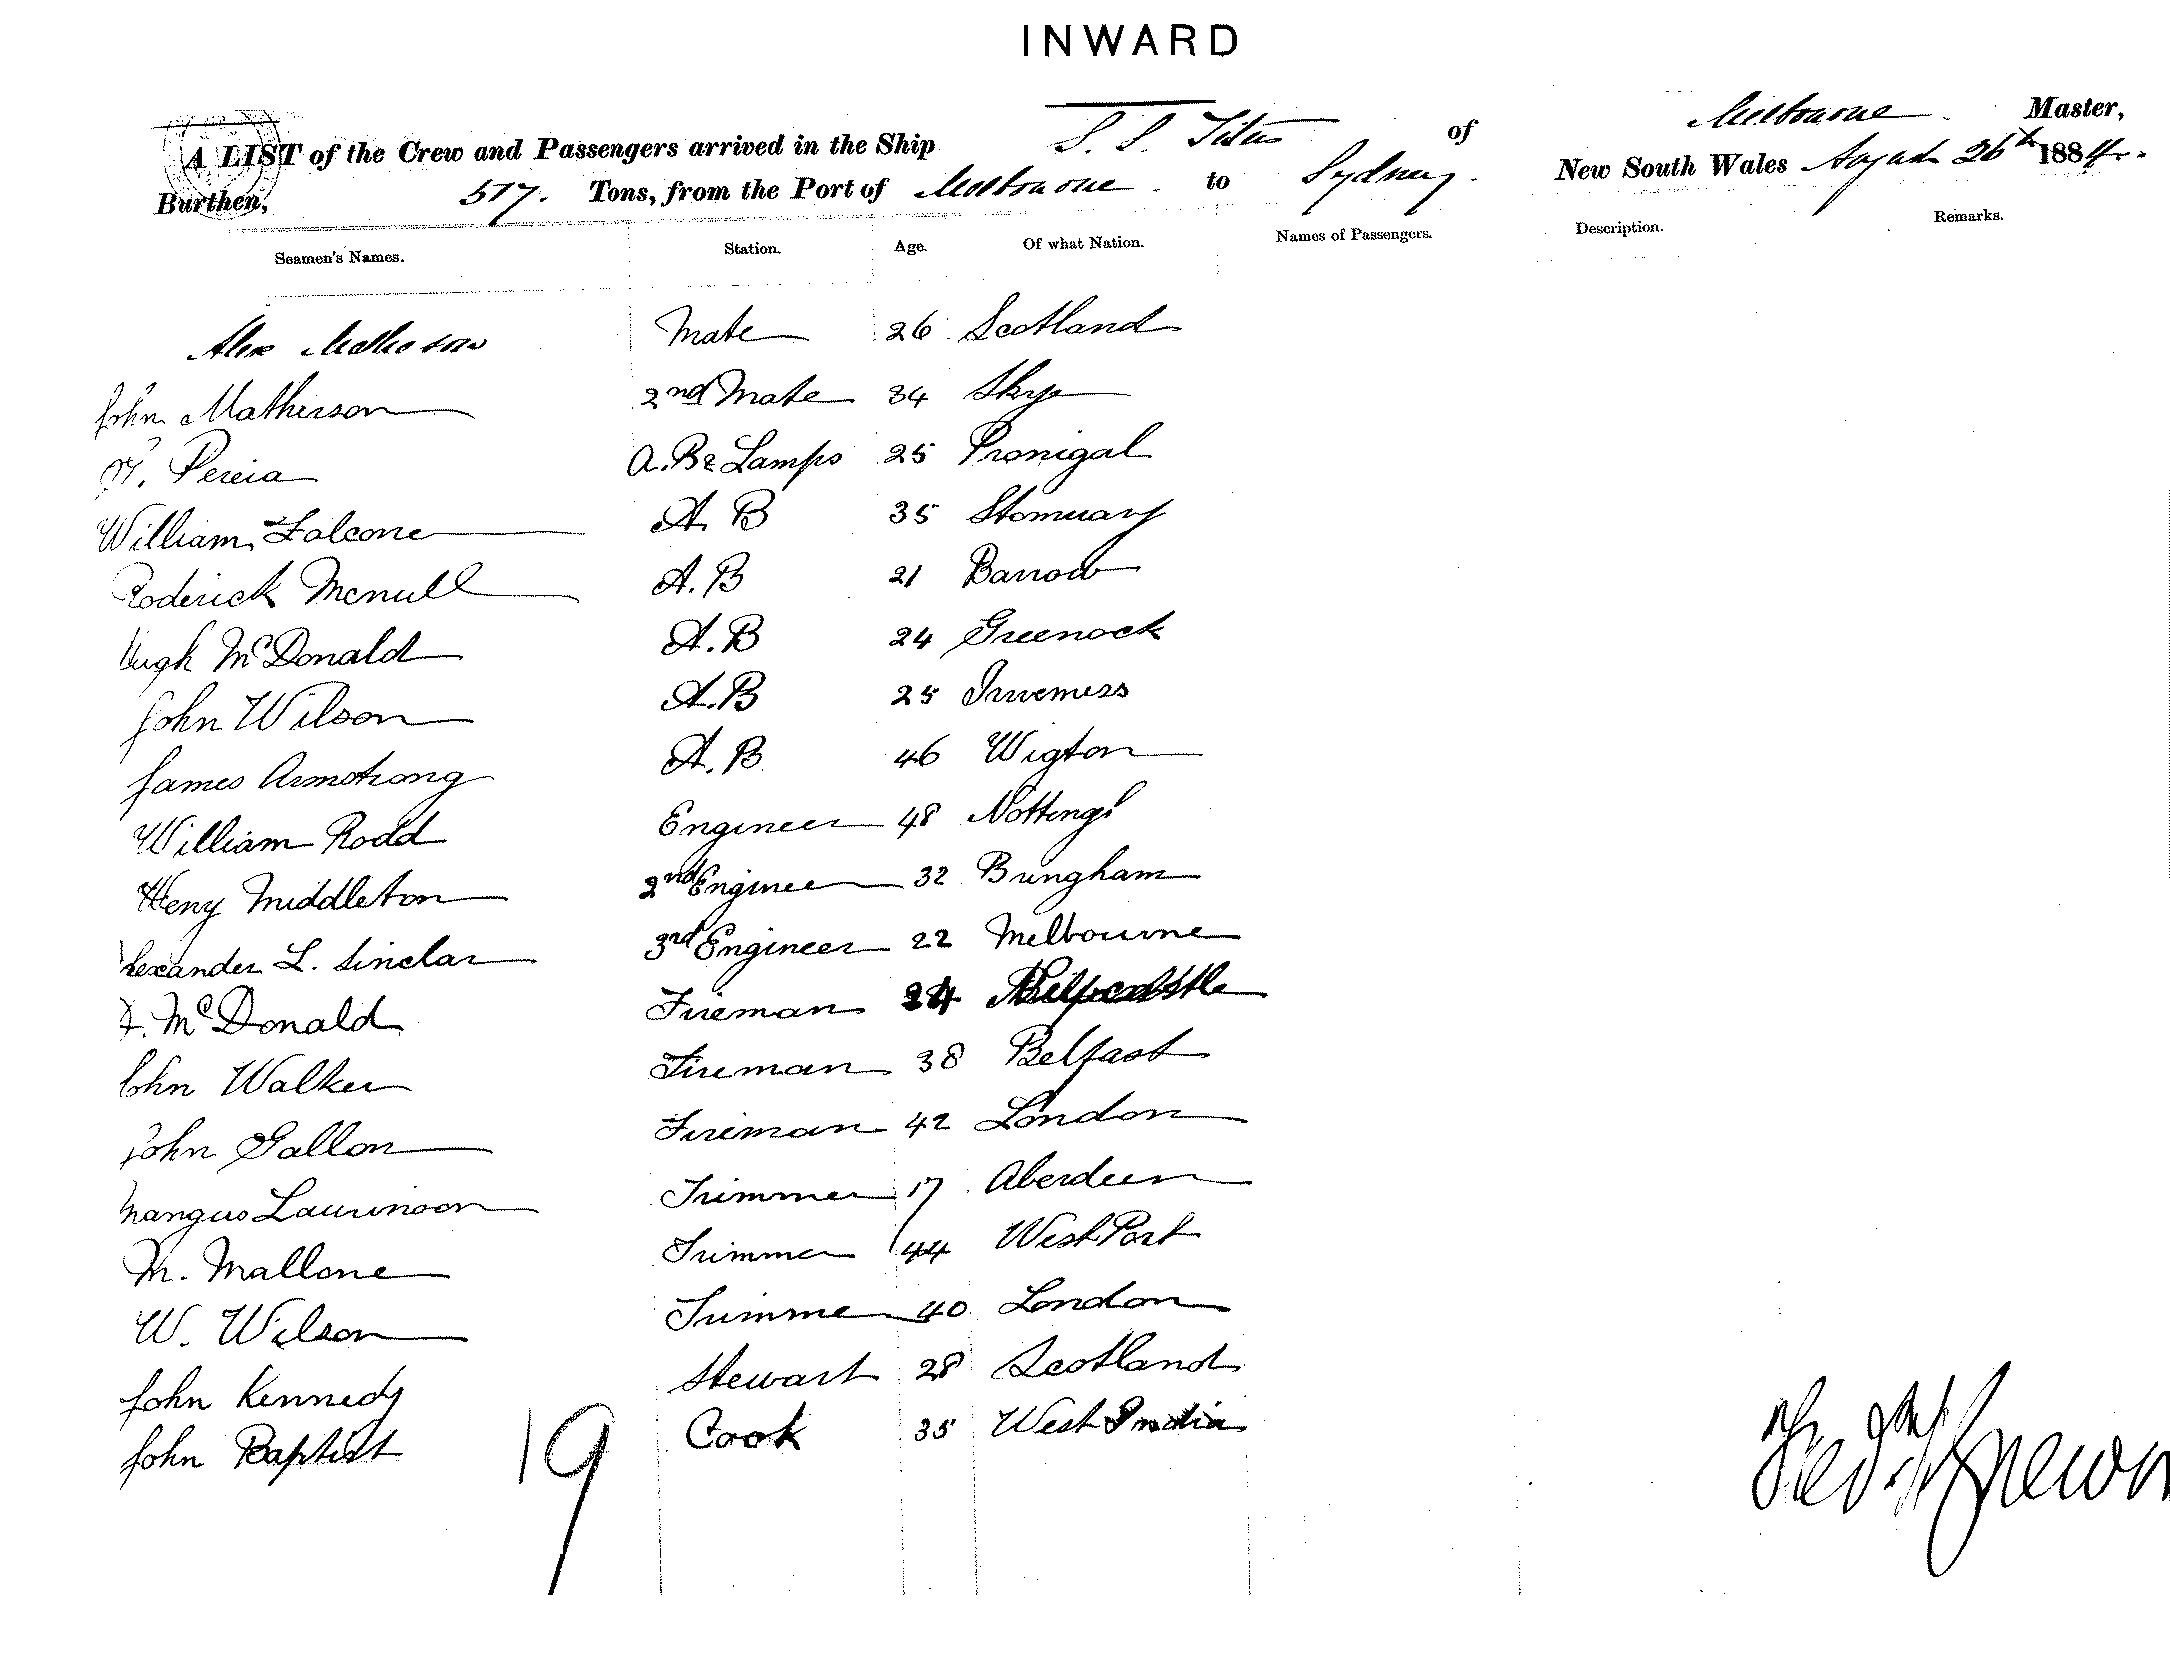 INWARD
A LIST of the Crew and Passengers arrived in the Ship S. S. Titus of Melbourne Master,
Burthen, 517. Tons, from the Port of Melbourne to Sydney. New South Wales August 26th 1884.
Seamen's Names. Station. Age. Of what Nation. Names of Passengers. Description. Remarks.
Alex Matheson Mate 26 Scotland
John Matherson 2nd Mate 34 Skye
Pereia A.B & Lamps 25
William Falcone A. B 35 Stornuary
Roderick Mcnull A.B 21 Barrow
Hugh McDonald A.B 24 Greenock
John Wilson A.B 25 Inverness
James Armstrong A.B 46 Wigton
William Rodd Engineer 48 Nottingh
Heny Middleton 2nd Engineer 32 Bringham
Alexander L. Sinclar 3rd Engineer 22 Melbourne
McDonald Fireman 24
John Walker Fireman 38 Belfast
John Gallon Fireman 42 London
Mangus Laurinson Trimmer 17 Aberdeen
M. Mallone Trimmer 44 West Port
W. Wilson Trimme 40 London
John Kennedy Stewart 28 Scotland
John Baptist Cook 35 West India
19